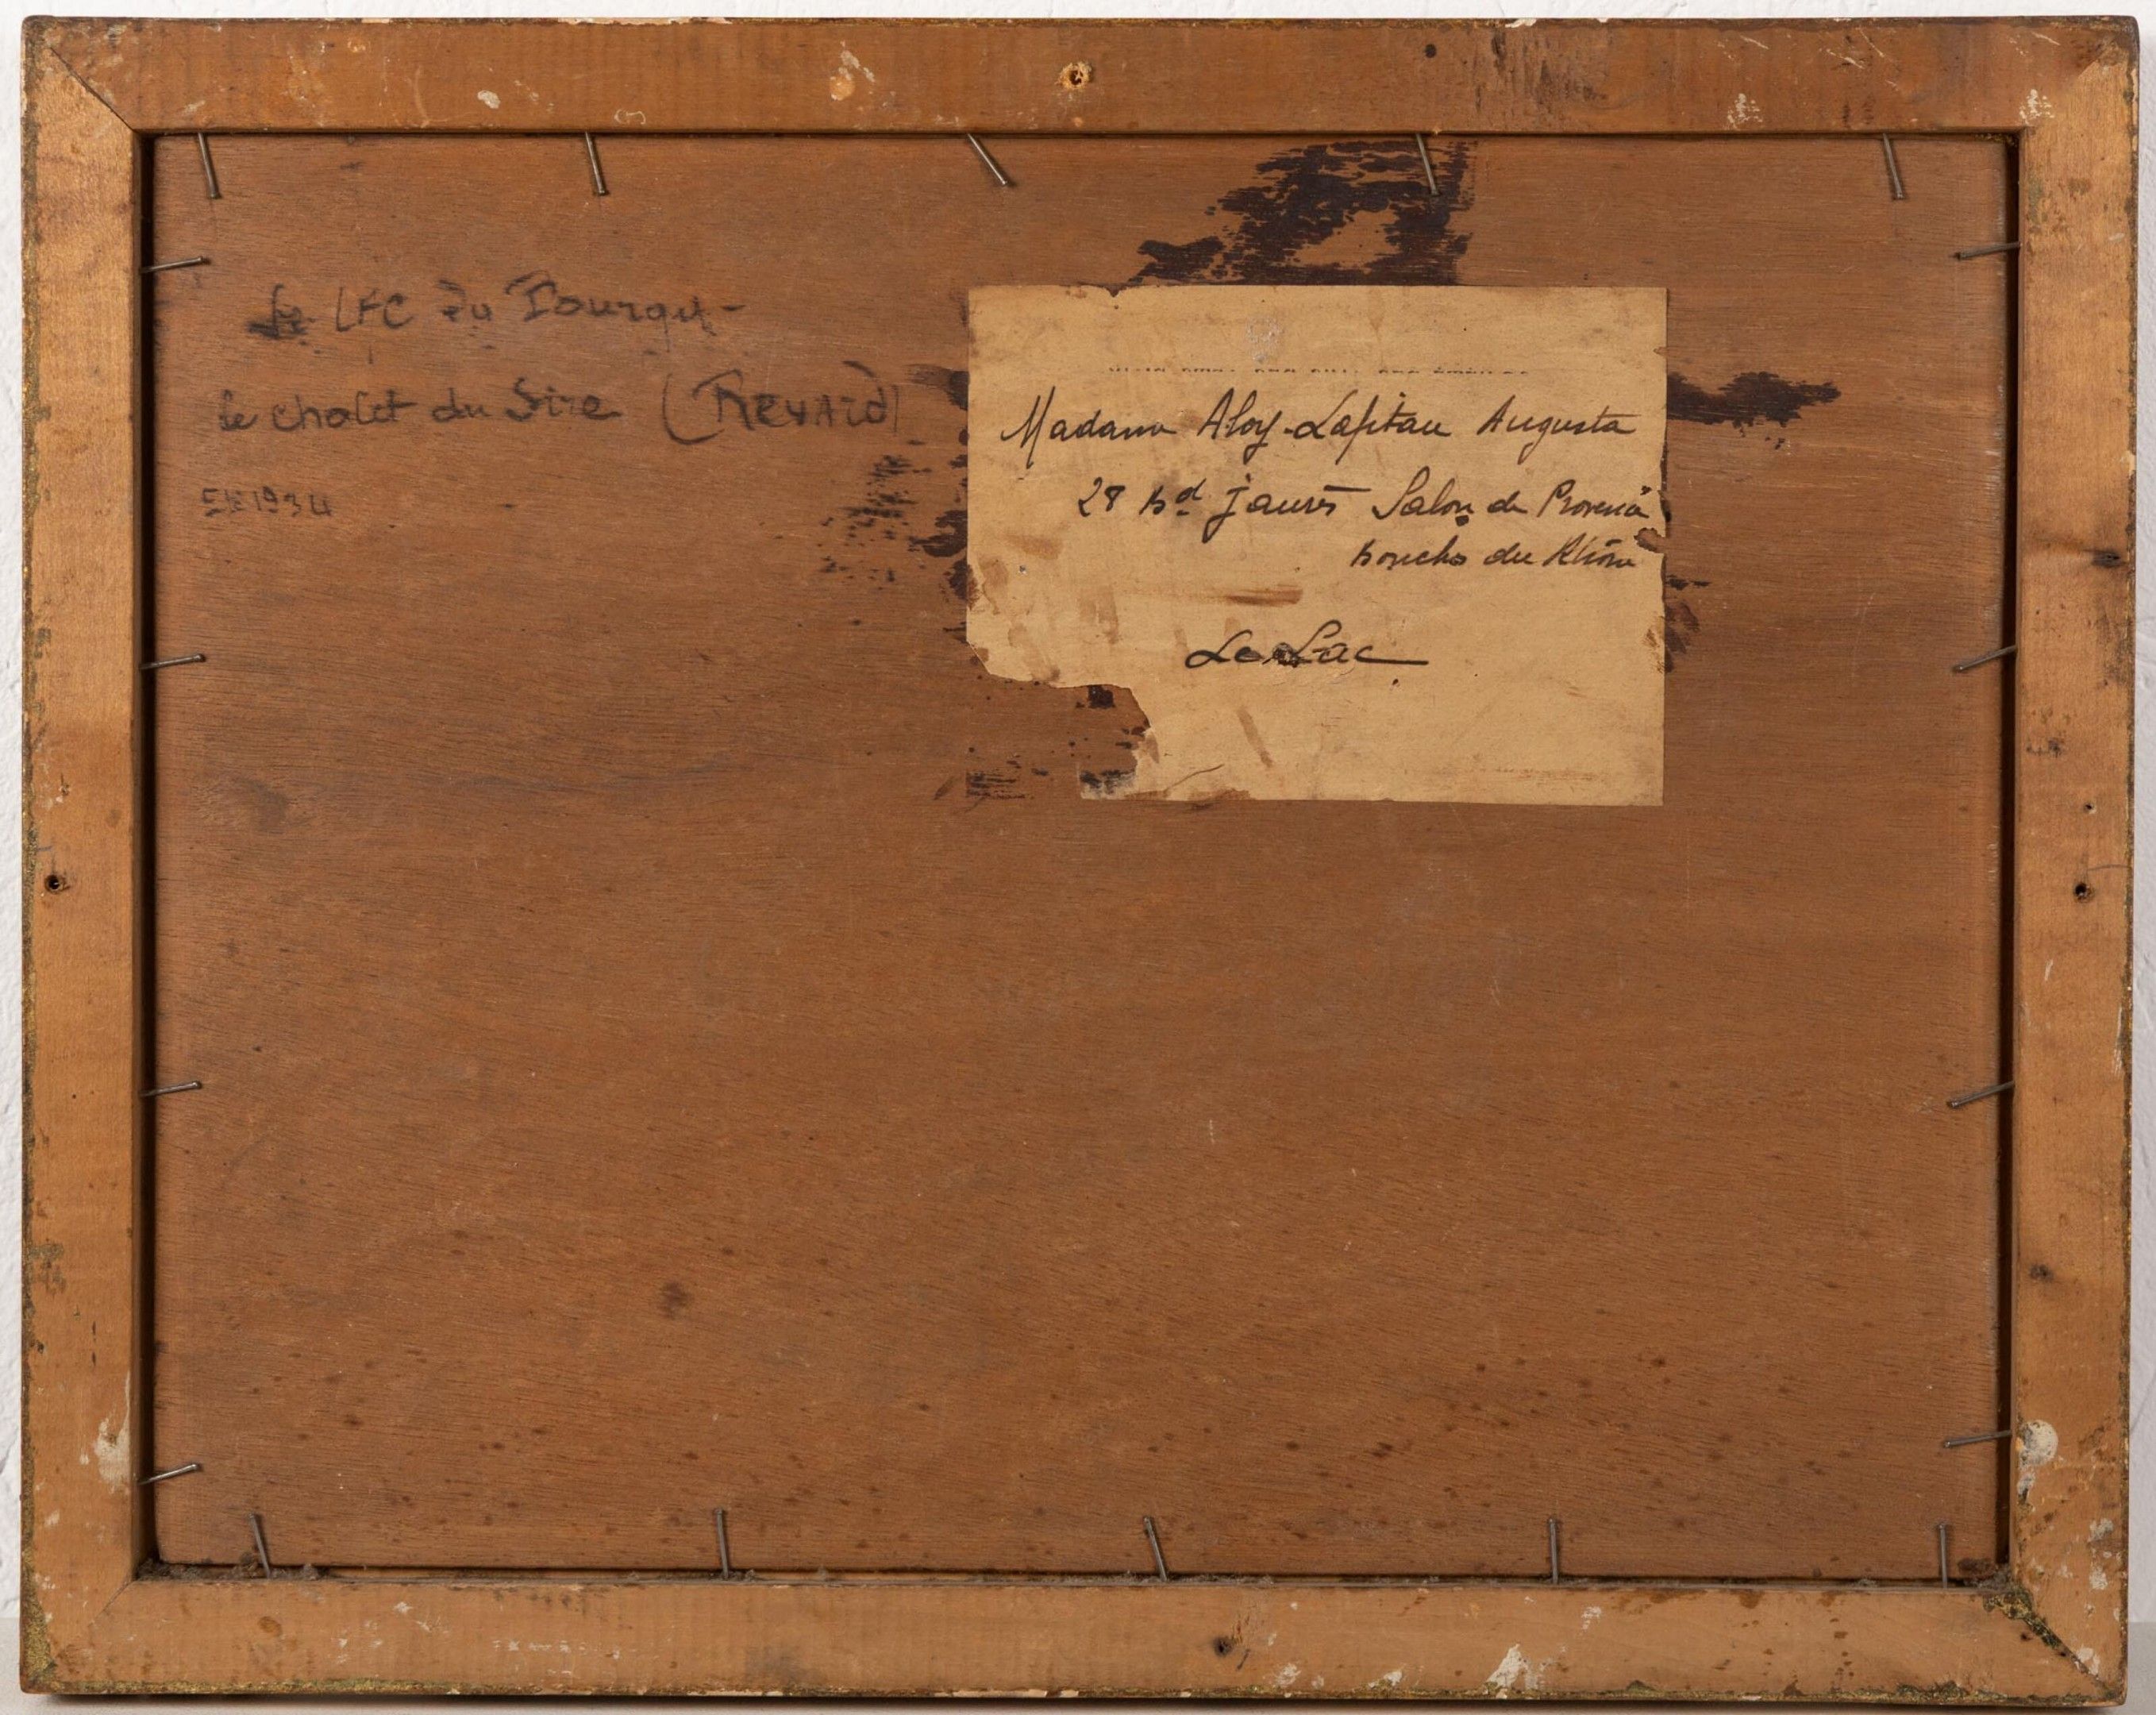 LAC du Bourget
le chalet du Sire (Revard)
1934
Madame Aloy-Lapitau Augusta
28 Bd Jaurès Salon de Provence
bouches du Rhône
Le Lac